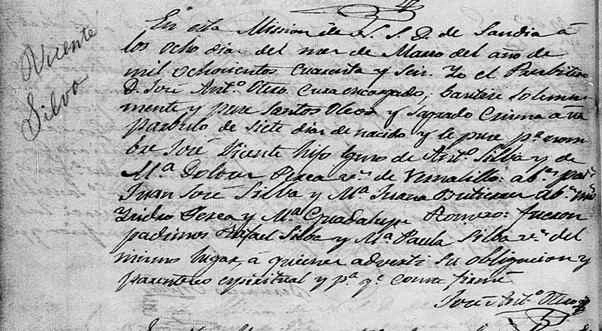 Vicente
Silva
En esta Mission de N. S. D. de Sandia á
los ocho dias del mes de Marso del año de
mil ochosientos cuarenta y seis. Yo el Presbitero
D. José Antº Otero, Cura encargado, bautisé solemne
mente y puse Santos Oleos y Sagrado Crisma a un
parbulo de siete dias de nacido y le puse pr nom
bre José Vicente hijo lgmo de Antº Silva y de
Mª Dolores Perea vs de Vernalillo: abs ps
Juan José Silva y Mª Juana Gutierres abs ms
Ysidro Perea y Mª Guadalupe Romero: fueron
padrinos Rafael Silva y Mª Paula Silva vs del
mismo lugar, a quienes adverti su obligacion y
parentesco espiritual y pª qe conste firmé
José Antº Otero